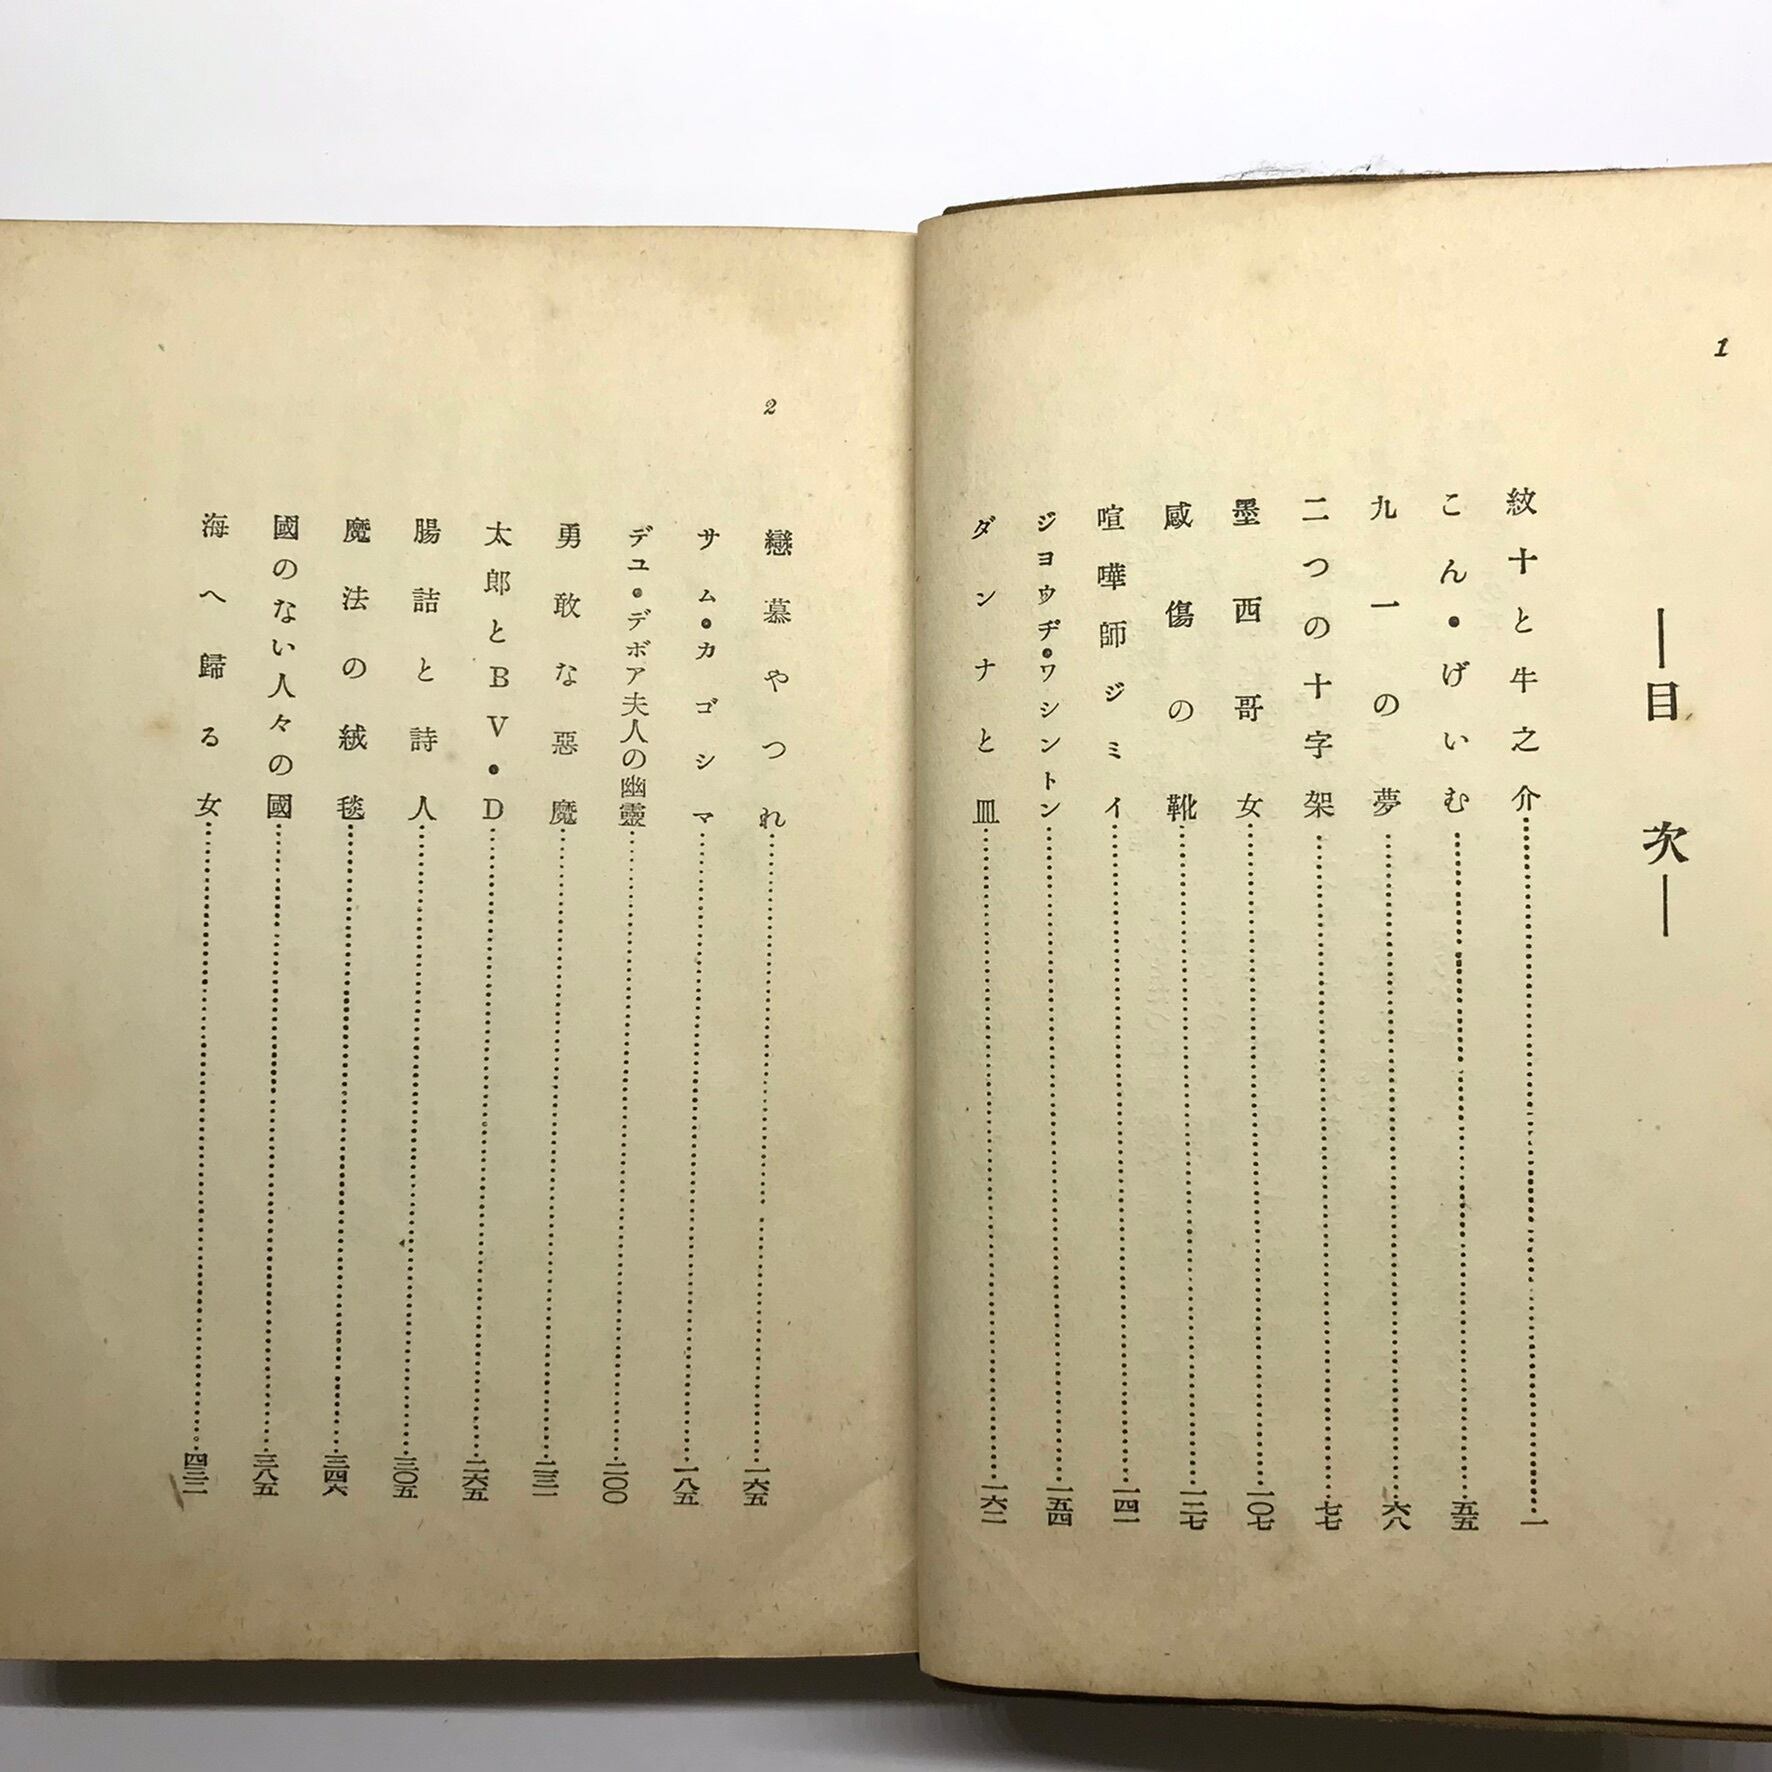 1
―目次―
紋十と牛之介……一
こん・げいむ……五五
九一の夢……六八
二つの十字架……七七
墨西哥女……一〇七
感傷の靴……一二七
喧嘩師ジミイ……一四一
ジヨウヂ・ワシントン……一五四
ダンナと皿……一六二
2
戀慕やつれ……一六五
サム・カゴシマ……一八五
デユ・デボア夫人の幽靈……二〇〇
勇敢な惡魔……二三一
太郎とBV・D……二六五
腸詰と詩人……三〇五
魔法の絨毯……三四六
國のない人々の國……三八五
海へ歸る女……四三二